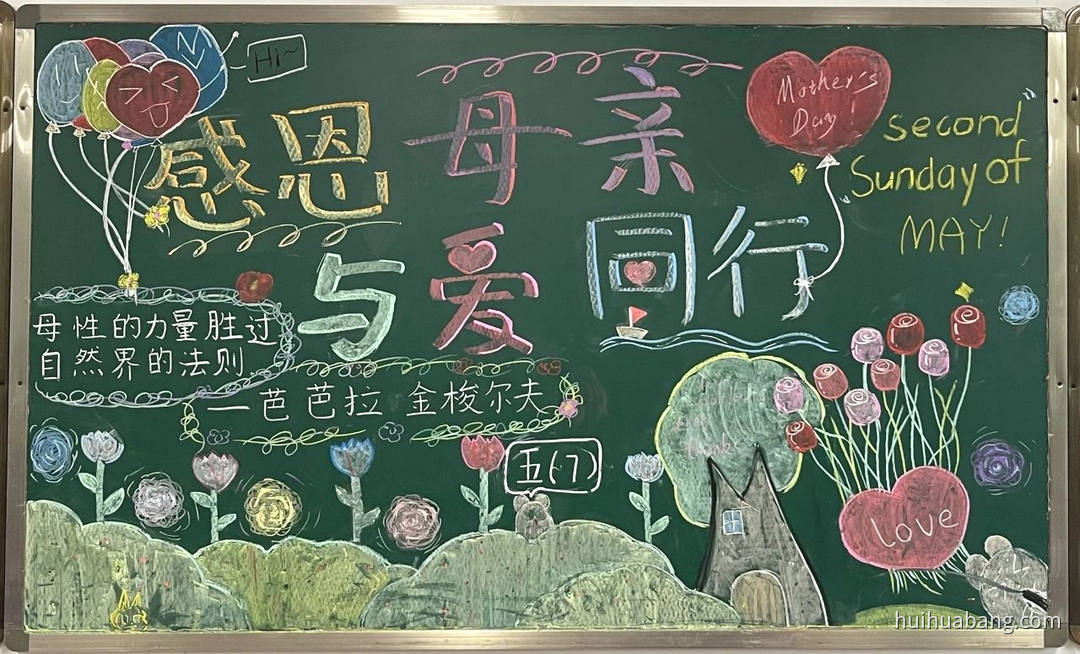 Hi~
感恩母亲
与爱同行
Mother's
Day!
second
Sunday of
MAY!
母性的力量胜过
自然界的法则
—芭芭拉 金梭尔夫
五(7)
Love
huihuabang.com